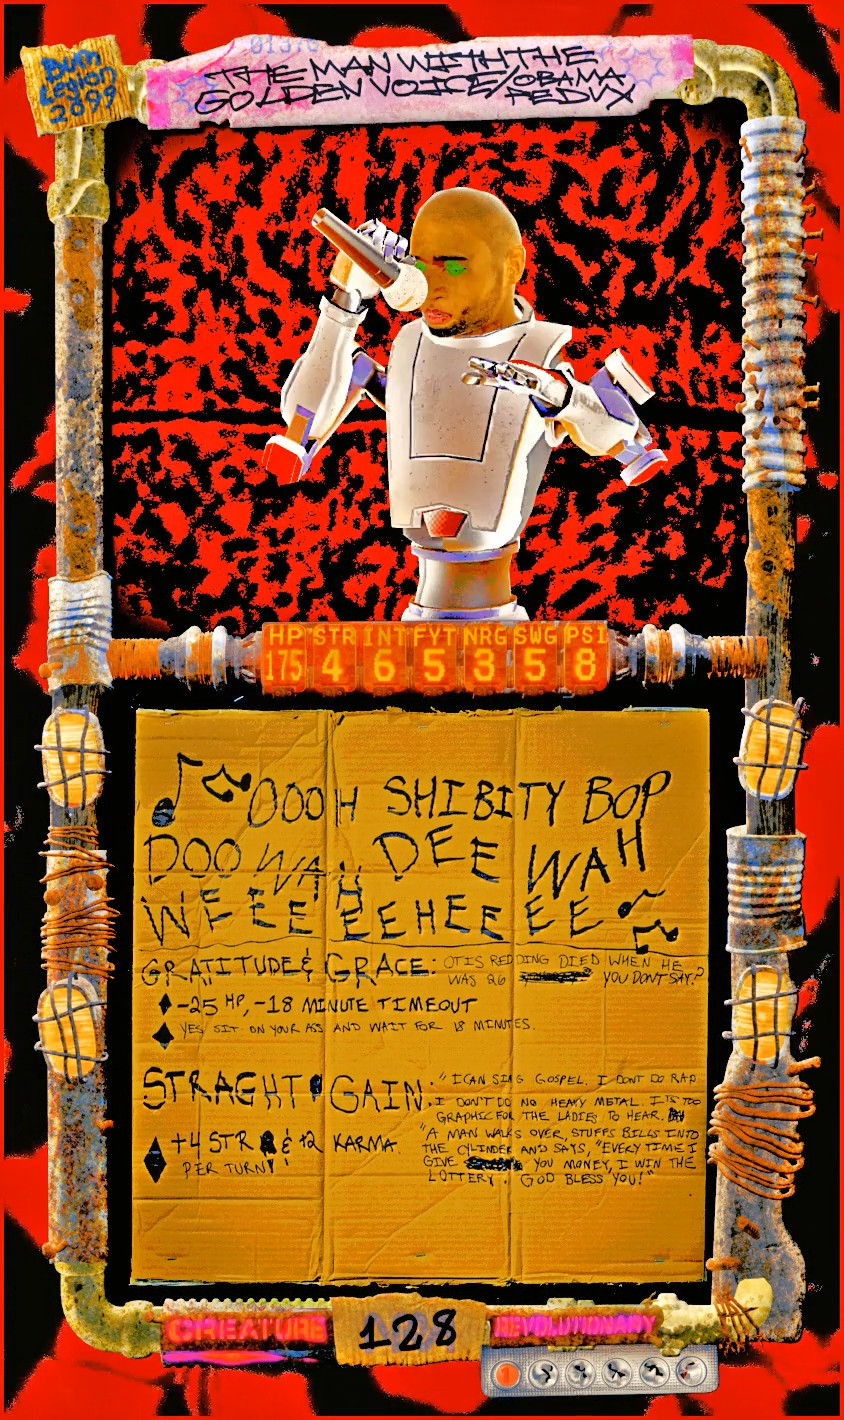 Bum
Legion
2099
01376
THE MAN WITH THE
GOLDEN VOICE/OBAMA
REDUX
HP STR INT FYT NRG SWG PSI
175 4 6 5 3 5 8
OOOH SHIBITY BOP
DOO WAH DEE WAH
WEEE EEHEEEEE
GRATITUDE & GRACE: OTIS REDDING DIED WHEN HE
WAS 26 YOU DONT SAY?
-25 HP, -18 MINUTE TIMEOUT
YES SIT ON YOUR ASS AND WAIT FOR 18 MINUTES.
STRAGHT GAIN: "I CAN SING GOSPEL. I DONT DO RAP
I DON'T DO NO HEAVY METAL. ITS TOO
GRAPHIC FOR THE LADIES TO HEAR.
+4 STR & +2 KARMA
PER TURN!
"A MAN WALKS OVER, STUFFS BILLS INTO
THE CYLINDER AND SAYS, "EVERY TIME I
GIVE YOU MONEY, I WIN THE
LOTTERY. GOD BLESS YOU!"
CREATURE 128 REVOLUTIONARY